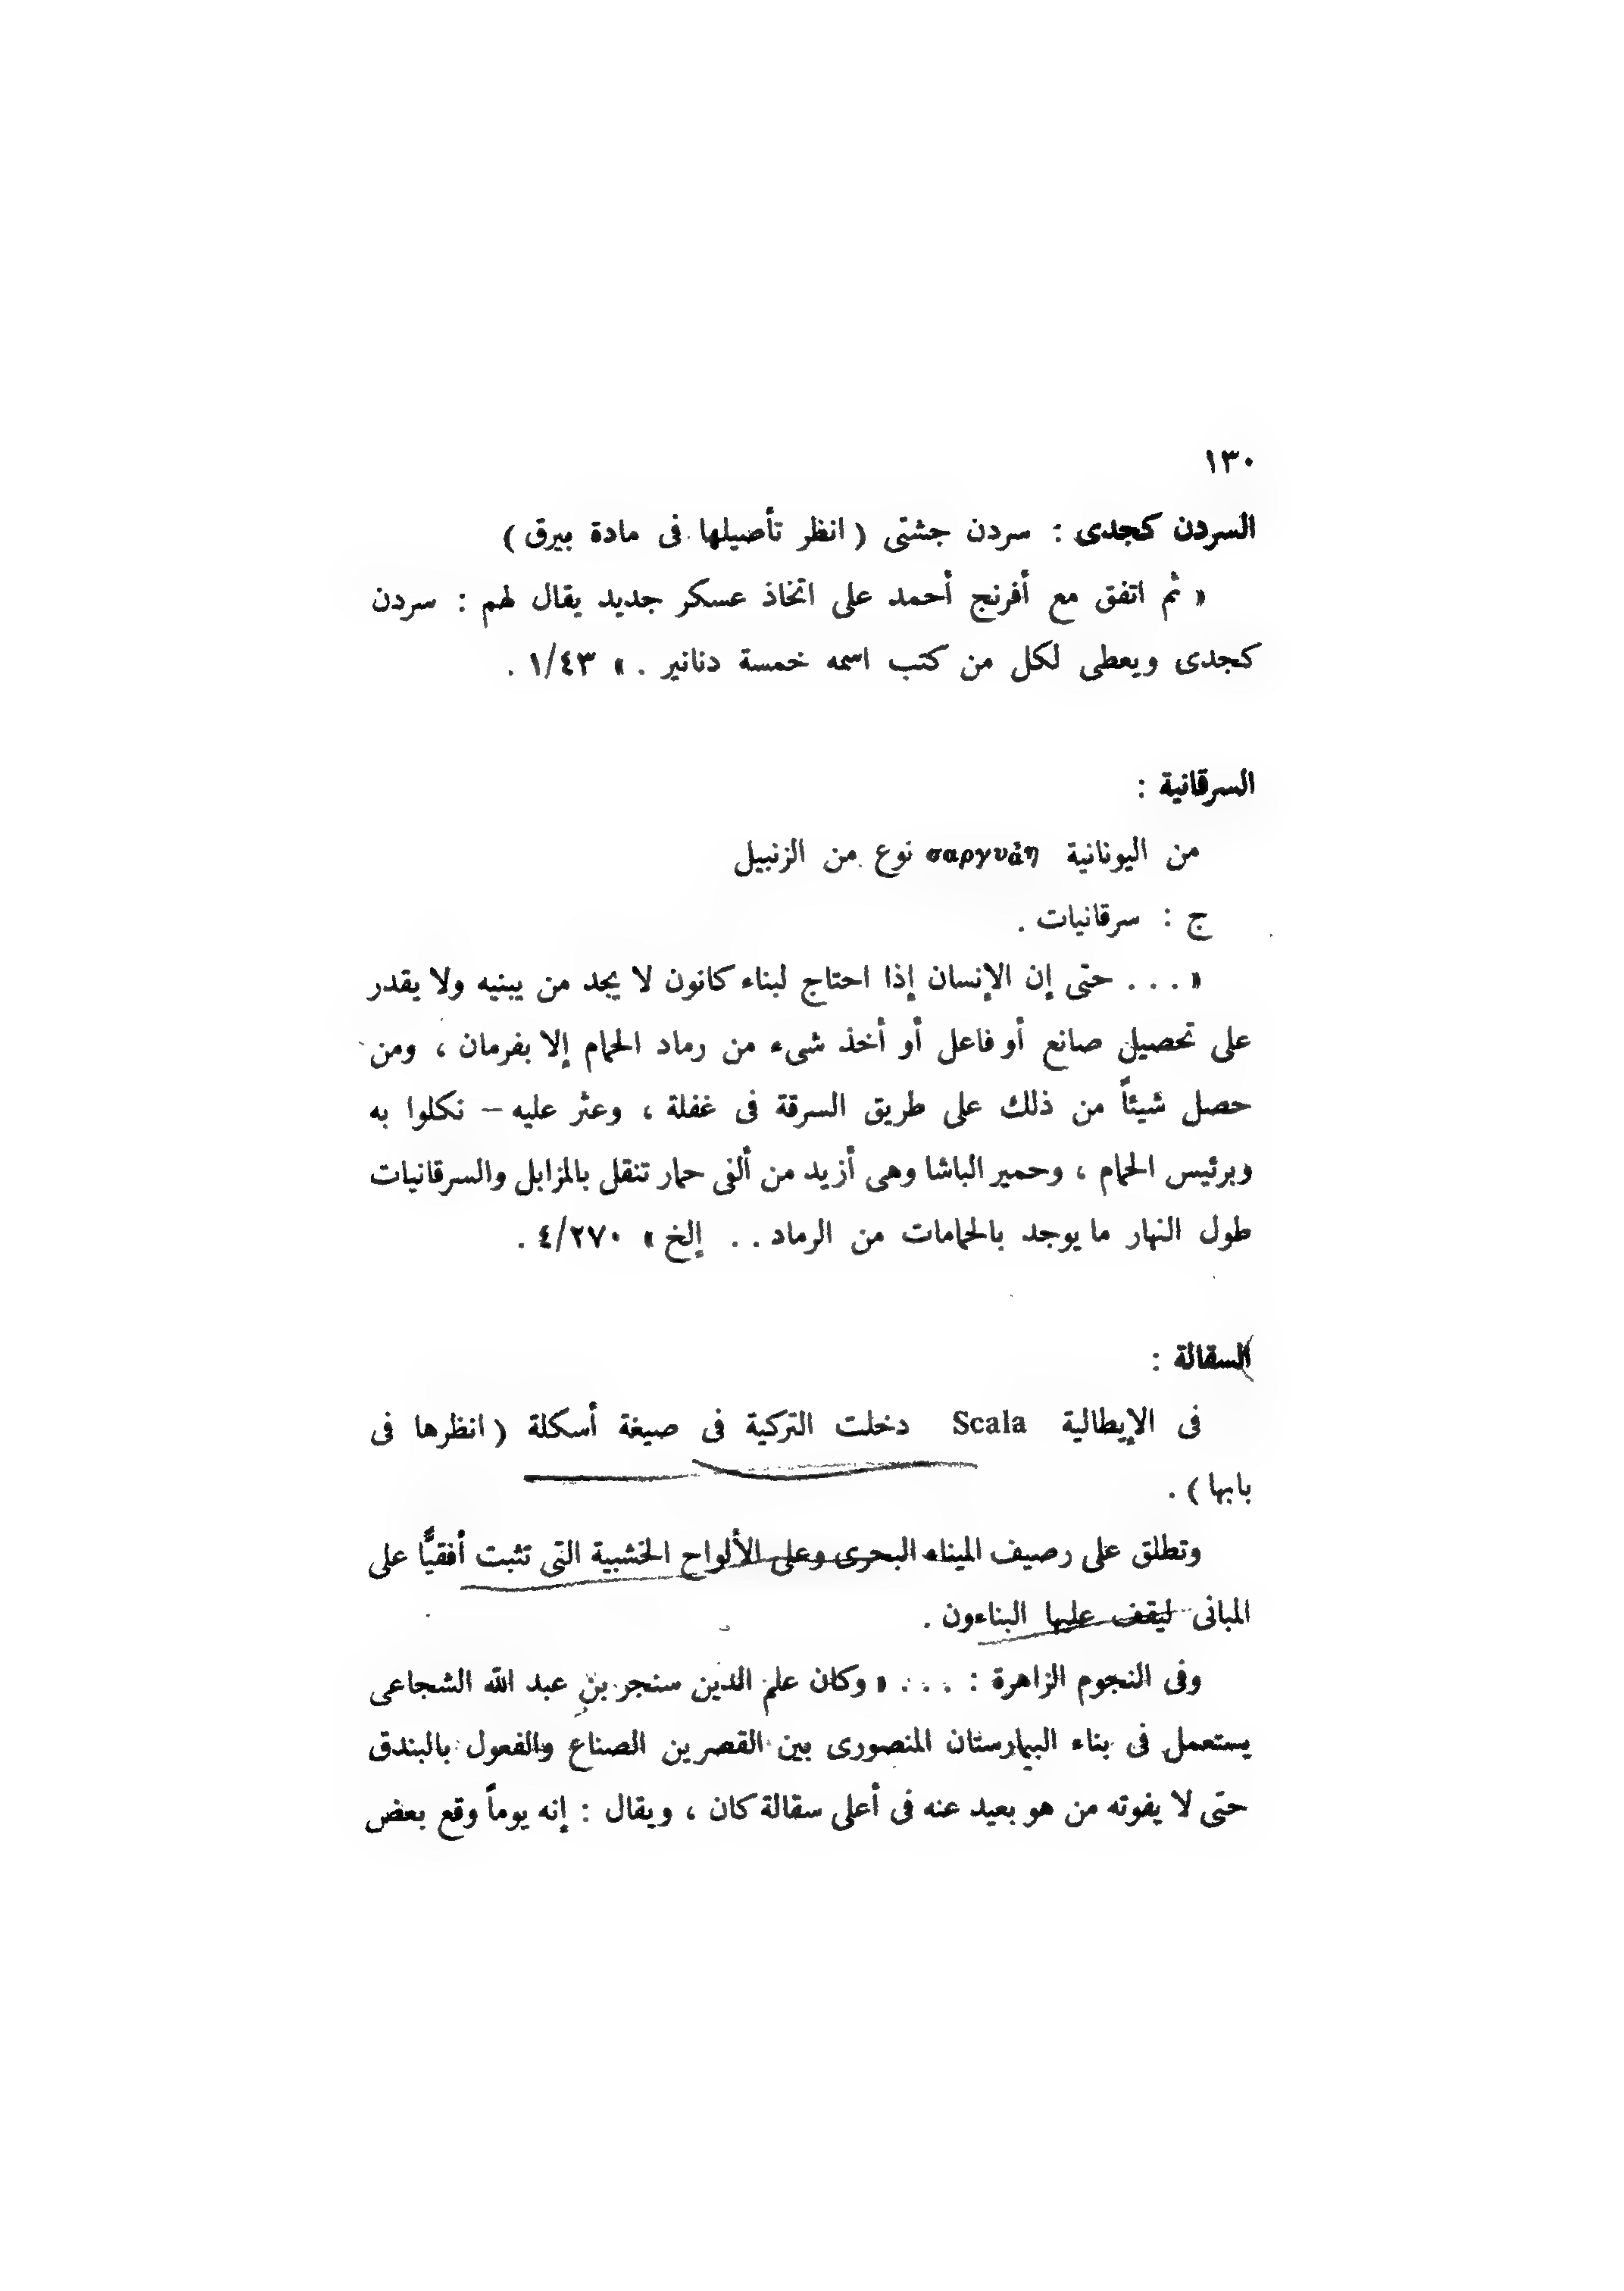 ١٣٠
السردن كجدى : سردن جشتى ( انظر تأصيلها فى مادة بيرق )
« ثم اتفق مع أفرنج أحمد على اتخاذ عسكر جديد يقال لهم : سردن
كجدى ويعطى لكل من كتب اسمه خمسة دنانير . » ١/٤٣ .
السرقانية :
من اليونانية σαργυάη نوع من الزنبيل
ج : سرقانيات .
« . . . حتى إن الإنسان إذا احتاج لبناء كانون لا يجد من يبنيه ولا يقدر
على تحصيل صانع أو فاعل أو أخذ شىء من رماد الحمام إلا بفرمان ، ومن
حصل شيئاً من ذلك على طريق السرقة فى غفلة ، وعثر عليه – نكلوا به
وبرئيس الحمام ، وحمير الباشا وهى أزيد من ألفى حمار تنقل بالمزابل والسرقانيات
طول النهار ما يوجد بالحمامات من الرماد . . إلخ » ٤/٢٧٠ .
السقالة :
فى الإيطالية Scala دخلت التركية فى صيغة أسكلة ( انظرها فى
بابها ) .
وتطلق على رصيف الميناء البحرى وعلى الألواح الخشبية التى تثبت أفقيًّا على
المبانى ليقف عليها البناءون .
وفى النجوم الزاهرة : . . . « وكان علم الدين سنجر بن عبد الله الشجاعى
يستعمل فى بناء البيمارستان المنصورى بين القصرين الصناع والفعول بالبندق
حتى لا يفوته من هو بعيد عنه فى أعلى سقالة كان ، ويقال : إنه يوماً وقع بعض